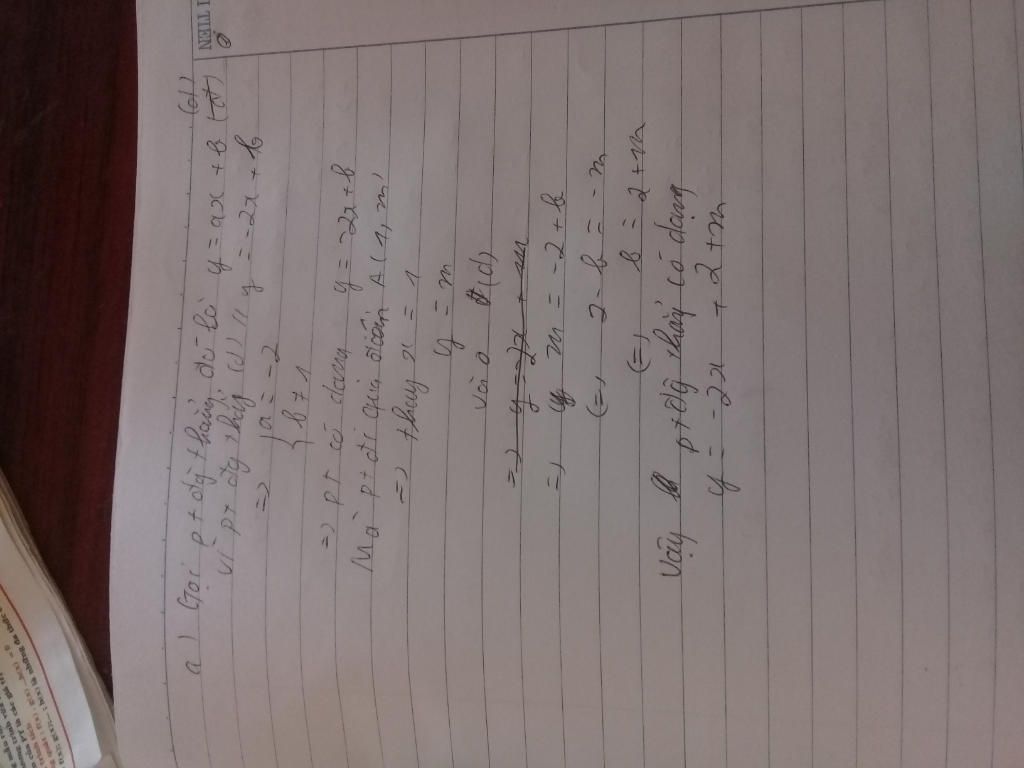 a) Gọi pt đg thẳng đó là y = ax + b (d)
vì pt đg thẳng (d) // y = -2x + b
=> { a = -2
{ b ≠ 1
=> pt có dạng y = -2x + b
Mà pt đi qua điểm A (1, m)
=> thay x = 1
y = m
vào (d)
=> y = -2x + m
=> m = -2 + b
(=) 2 - b = -m
(=) b = 2 + m
Vậy pt đg thẳng có dạng
y = -2x + 2 + m